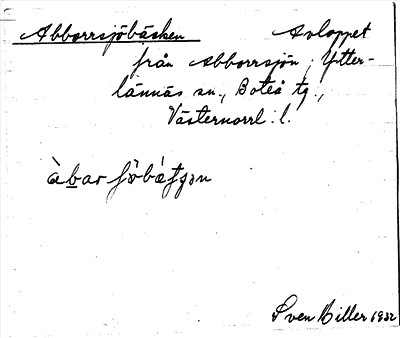 Abborrsjöbäcken Avloppet
från Abborrsjön, Ytter-
lännäs sn., Boteå tg.,
Västernorrl. l.
àbar
Sven Hiller 1932